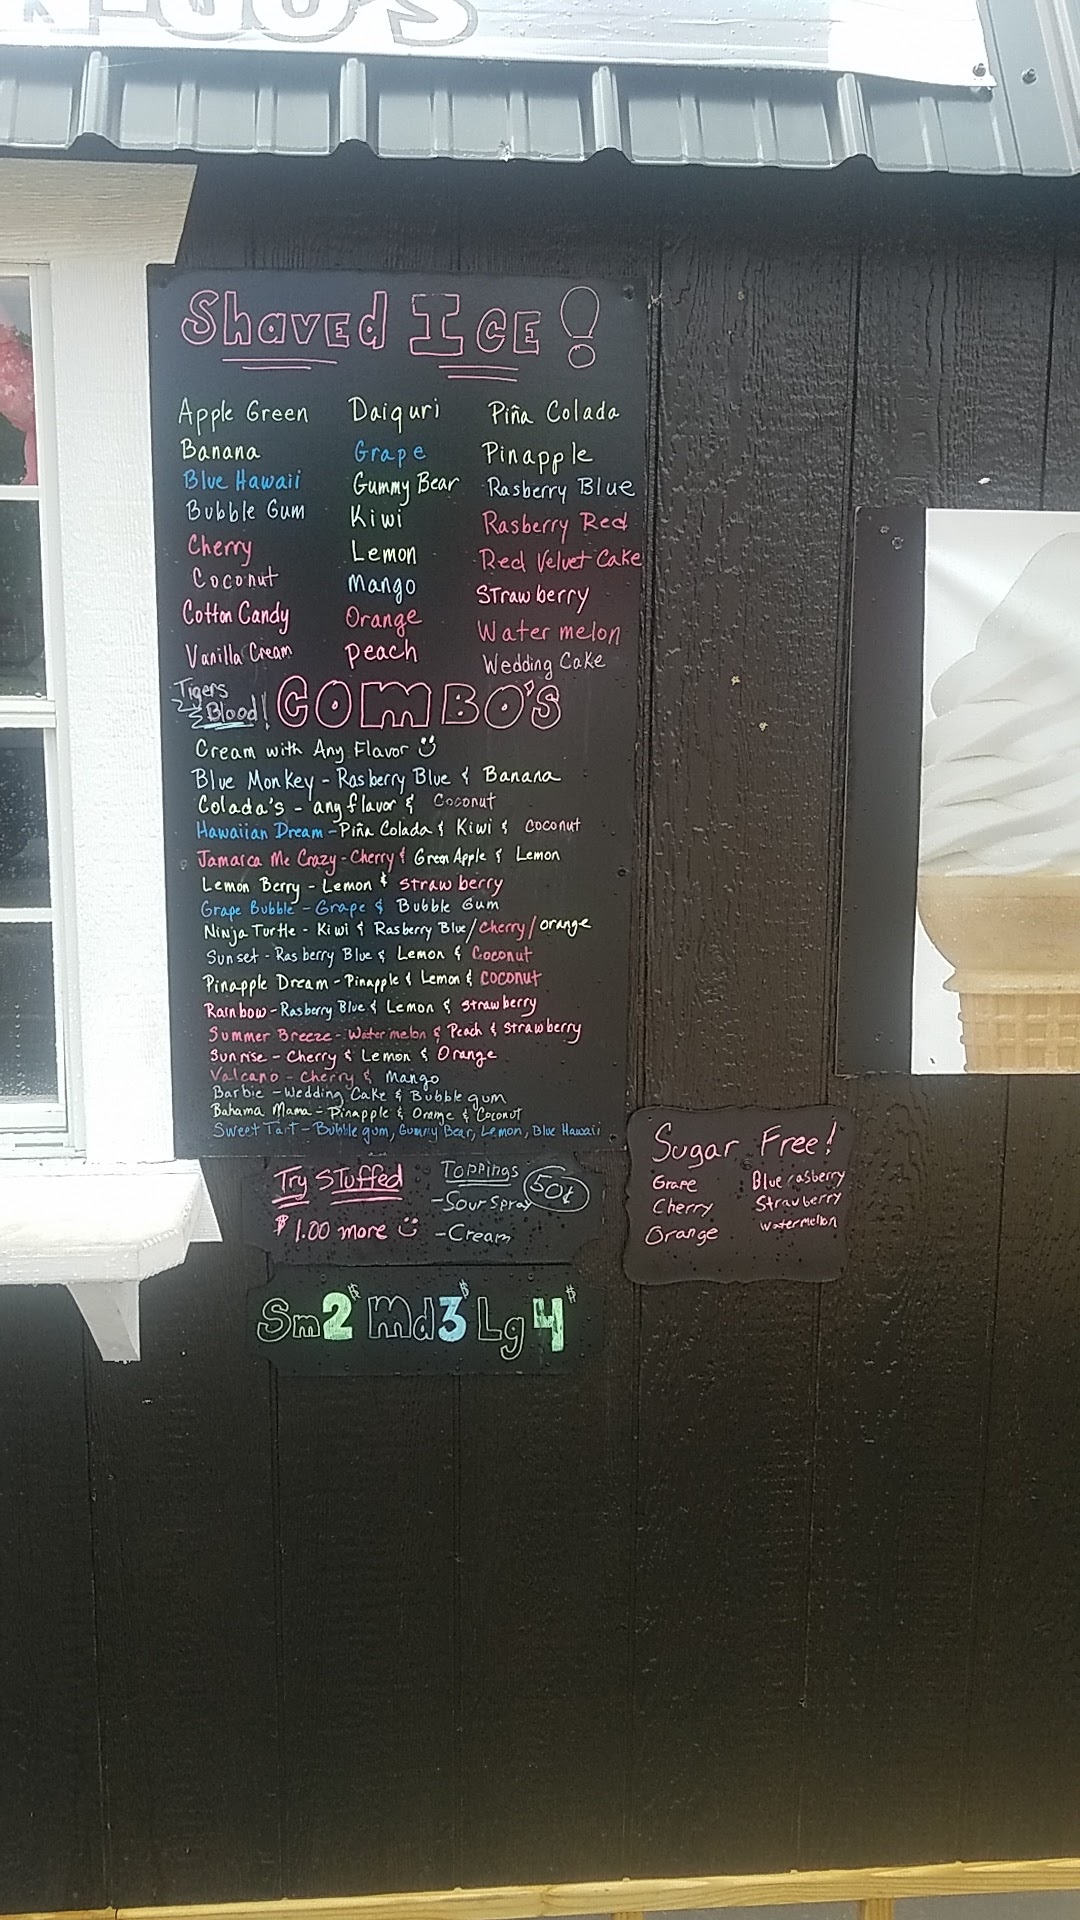 Shaved ICE!
Apple Green Daiquri Piña Colada
Banana Grape Pinapple
Blue Hawaii Gummy Bear Rasberry Blue
Bubble Gum Kiwi Rasberry Red
Cherry Lemon Red Velvet Cake
Coconut Mango Strawberry
Cotton Candy Orange Water melon
Vanilla Cream Peach Wedding Cake
Tigers Blood!
COMBO'S
Cream with Any Flavor
Blue Monkey - Rasberry Blue & Banana
Colada's - any flavor & Coconut
Hawaiian Dream - Piña Colada & Kiwi & Coconut
Jamaica Me Crazy - Cherry & Green Apple & Lemon
Lemon Berry - Lemon & Strawberry
Grape Bubble - Grape & Bubble Gum
Ninja Turtle - Kiwi & Rasberry Blue/Cherry/orange
Sunset - Rasberry Blue & Lemon & Coconut
Pinapple Dream - Pinapple & Lemon & Coconut
Rainbow - Rasberry Blue & Lemon & Strawberry
Summer Breeze - Water melon & Peach & Strawberry
Sunrise - Cherry & Lemon & Orange
Valcano - Cherry & Mango
Barbie - Wedding Cake & Bubble gum
Bahama Mama - Pinapple & Orange & Coconut
Sweet Tart - Bubble gum, Gummy Bear, Lemon, Blue Hawaii
Try STuffed
$1.00 more
Toppings 50¢
- Sour Spray
- Cream
Sm 2$ Md 3$ Lg 4$
Sugar Free!
Grape Blue rasberry
Cherry Strawberry
Orange watermelon